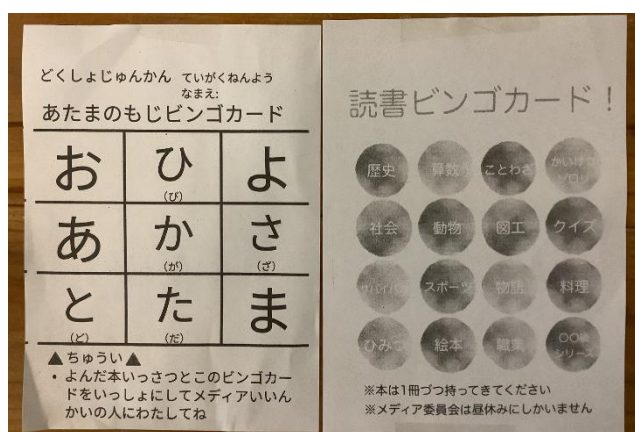 どくしょじゅんかん ていがくねんよう
なまえ:
あたまのもじビンゴカード
お ひ よ
(び)
あ か さ
(が) (ざ)
と た ま
(ど) (だ)
▲ちゅうい▲
・よんだ本いっさつとこのビンゴカー
ドをいっしょにしてメディアいいん
かいの人にわたしてね
読書ビンゴカード！
歴史 算数 ことわざ かいけつ
ゾロリ
社会 動物 図工 クイズ
サバイバル スポーツ 物語 料理
ひみつ 絵本 職業 〇〇
シリーズ
※本は1冊づつ持ってきてください
※メディア委員会は昼休みにしかいません